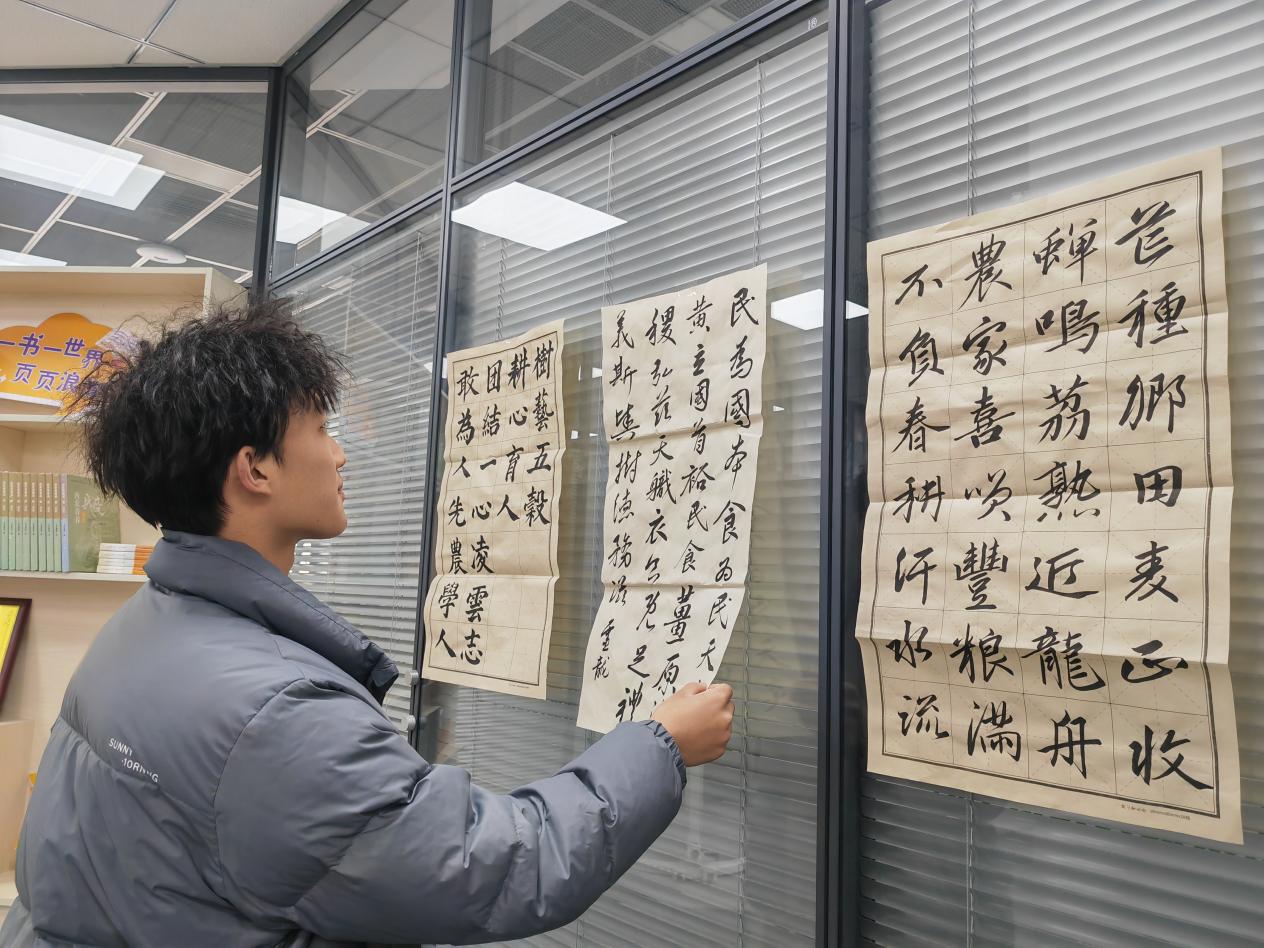 一书一世界
页页浪
樹藝五穀
耕心育人
团結一心凌雲志
敢為人先農學人
民為國本食为民天
黄立國首裕民食薑原
稷弘茲天職衣食既足神
義斯興樹德務滋
重龍
芒種鄉田麦正收
蟬鳴荔熟近龍舟
農家喜咲豐粮滿
不負春耕汗水流
SUNNY
MORNING